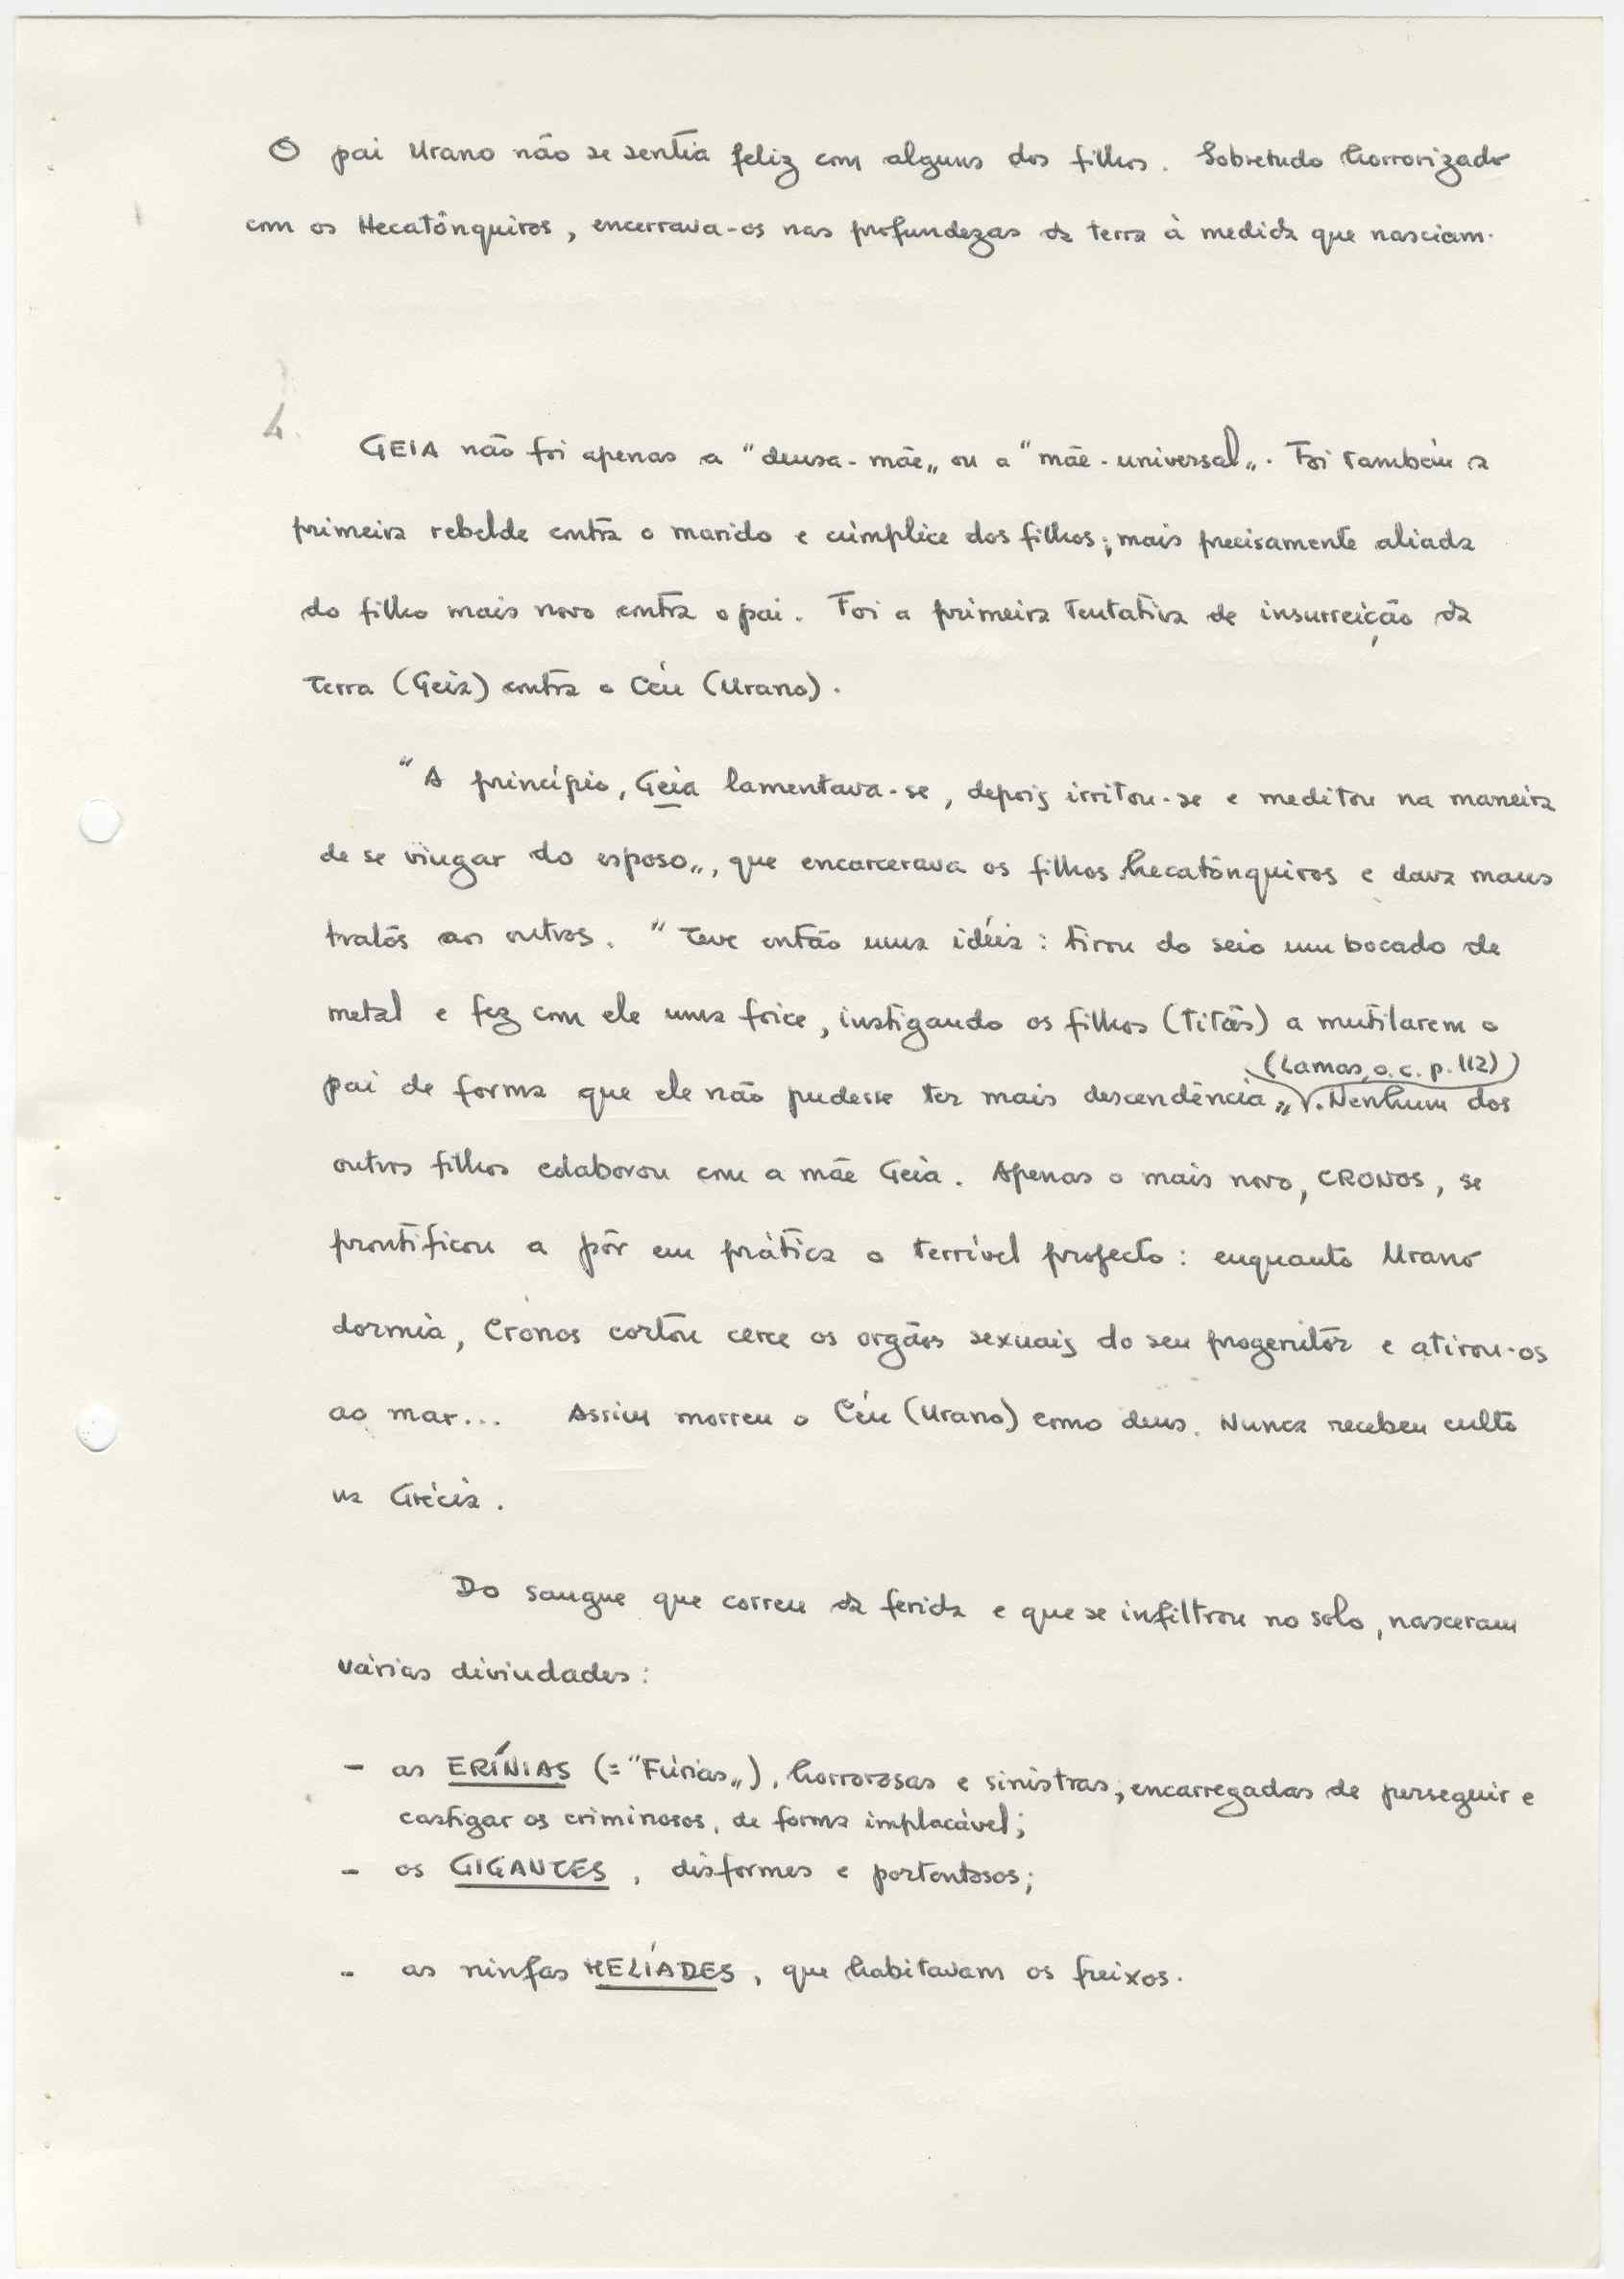 O pai Urano não se sentia feliz com alguns dos filhos. Sobretudo horrorizado
com os Hecatônquiros, encerrava-os nas profundezas da terra à medida que nasciam.
GEIA não foi apenas a "deusa-mãe„ ou a "mãe-universal„. Foi também a
primeira rebelde contra o marido e cúmplice dos filhos; mais precisamente aliada
do filho mais novo contra o pai. Foi a primeira tentativa de insurreição da
Terra (Geia) contra o Céu (Urano).
"A princípio, Geia lamentava-se, depois irritou-se e meditou na maneira
de se vingar do esposo„, que encarcerava os filhos hecatônquiros e dava maus
tratos aos outros. "Teve então uma idéia: tirou do seio um bocado de
metal e fez com ele uma foice, instigando os filhos (Titãs) a mutilarem o
(Lamas, o.c. p. 112)
pai de forma que ele não pudesse ter mais descendência„. Nenhum dos
outros filhos colaborou com a mãe Geia. Apenas o mais novo, CRONOS, se
prontificou a pôr em prática o terrível projecto: enquanto Urano
dormia, Cronos cortou cerce os orgãos sexuais do seu progenitor e atirou-os
ao mar... Assim morreu o Céu (Urano) como deus. Nunca recebeu culto
na Grécia.
Do sangue que correu da ferida e que se infiltrou no solo, nasceram
várias divindades:
- as ERÍNIAS (= "Fúrias„), horrorosas e sinistras; encarregadas de perseguir e
castigar os criminosos, de forma implacável;
- os GIGANTES, disformes e portentosos;
- as ninfas MELÍADES, que habitavam os freixos.